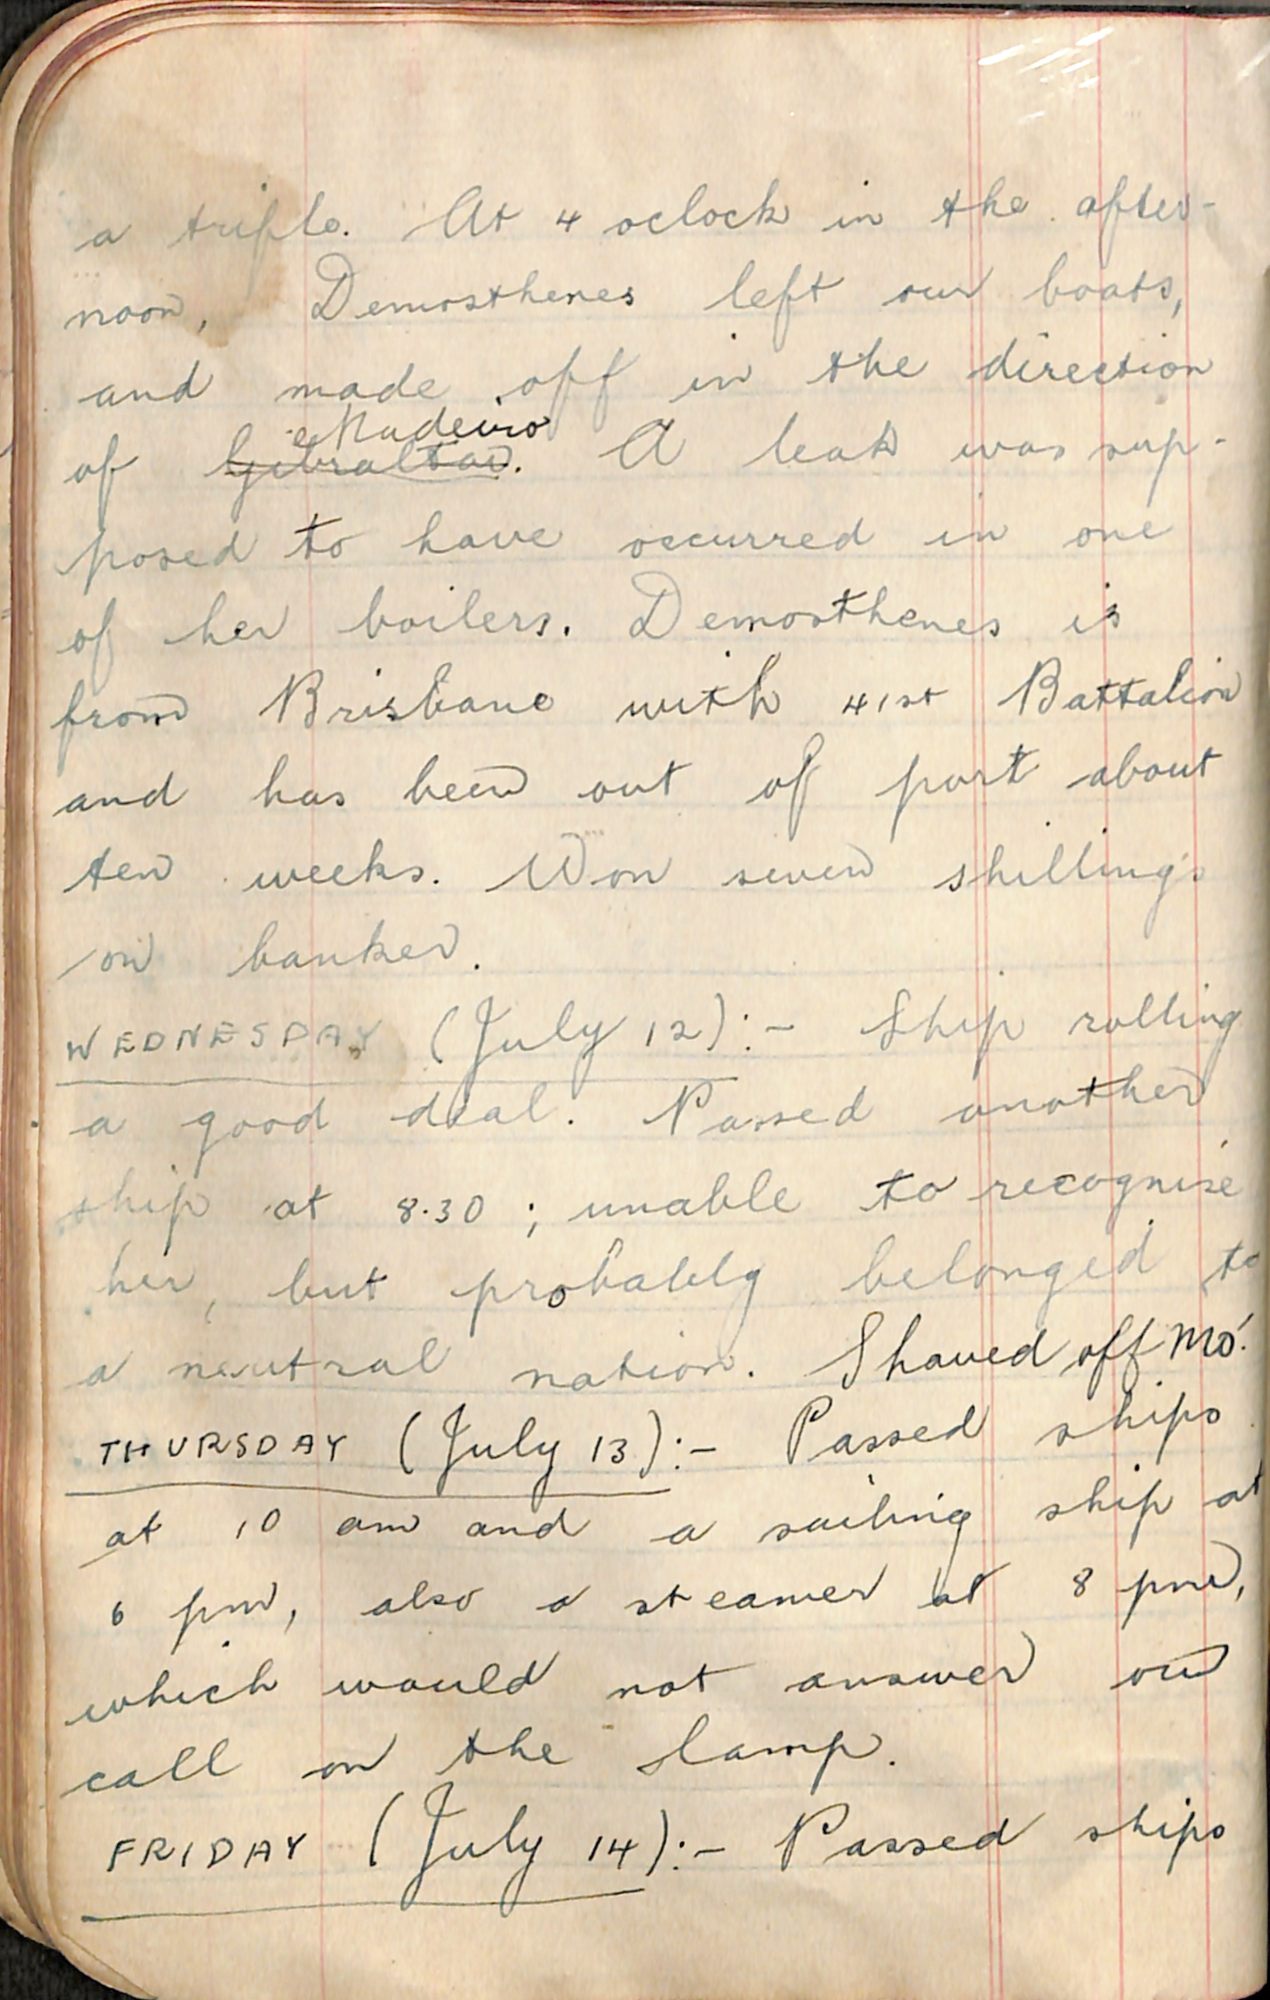 a triple. At 4 oclock in the after-
noon, Demosthenes left our boats,
and made off in the direction
Madeira
of Gibraltar. A leak was sup-
posed to have occurred in one
of her boilers. Demosthenes is
from Brisbane with 41st Battalion
and has been out of port about
ten weeks. Won seven shillings
on banker.
WEDNESDAY (July 12):- Ship rolling
a good deal. Passed another
ship at 8.30 ; unable to recognise
her, but probably belonged to
a neutral nation. Shaved off mo'.
THURSDAY (July 13):- Passed ships
at 10 am and a sailing ship at
6 pm, also a steamer at 8 pm,
which would not answer our
call on the lamp.
FRIDAY (July 14):- Passed ships